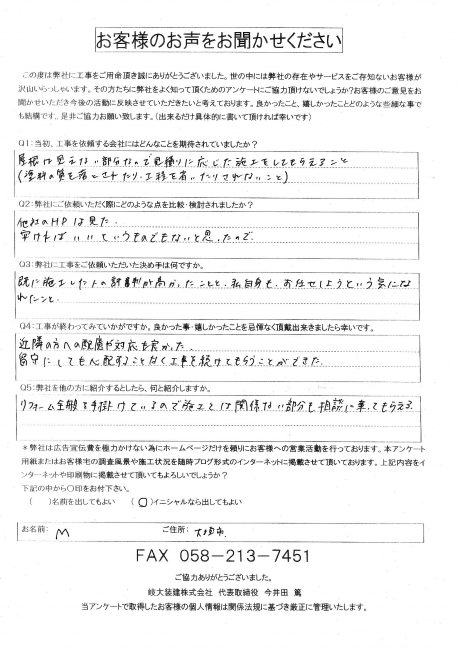 お客様のお声をお聞かせください
この度は弊社に工事をご用命頂き誠にありがとうございました。世の中には弊社の存在やサービスをご存知ないお客様が
沢山いらっしゃいます。その方たちに弊社をよく知って頂くためのアンケートにご協力頂けないでしょうか?お客様のご意見をお
聞かせいただき今後の活動に反映させていただきたいと考えております。良かったこと、嬉しかったことどのような些細な事で
も結構です、是非ご協力お願い致します。(出来るだけ具体的に書いて頂ければ幸いです)
Q1:当初、工事を依頼する会社にはどんなことを期待されていましたか?
屋根は見えない部分なので見積りに応じた施工をしてもらえること
(塗料の質を落とされたり、工程を省いたりされないこと)
Q2:弊社にご依頼いただく際にどのような点を比較・検討されましたか?
他社のHPは見た。
安ければいいというものでもないと思ったので。
Q3:弊社に工事をご依頼いただいた決め手は何ですか。
既に施工した人の評判が高かったことと、私自身も、お任せしようという気にな
れたこと。
Q4:工事が終わってみていかがですか。良かった事・嬉しかったことを忌憚なく頂戴出来きましたら幸いです。
近隣の方への配慮や対応も良かった。
留守にしても心配することなく工事を続けてもらうことができた。
Q5:弊社を他の方に紹介するとしたら、何と紹介しますか。
リフォーム全般を手掛けているので施工とは関係ない部分も相談に乗ってもらえる
*弊社は広告宣伝費を極力かけない為にホームページだけを頼りにお客様への営業活動を行っております。本アンケート
用紙またはお客様宅の調査風景や施工状況を随時ブログ形式のインターネットに掲載させて頂いております。上記内容をイ
ンターネットや印刷物に掲載させて頂いてもよろしいでしょうか?
下記の中から〇印をお付下さい。
( )名前を出してもよい (〇)イニシャルなら出してもよい
お名前: M ご住所: 大垣市
FAX 058-213-7451
ご協力ありがとうございました。
岐大装建株式会社 代表取締役 今井田 篤
当アンケートで取得したお客様の個人情報は関係法規に基づき厳正に管理いたします。